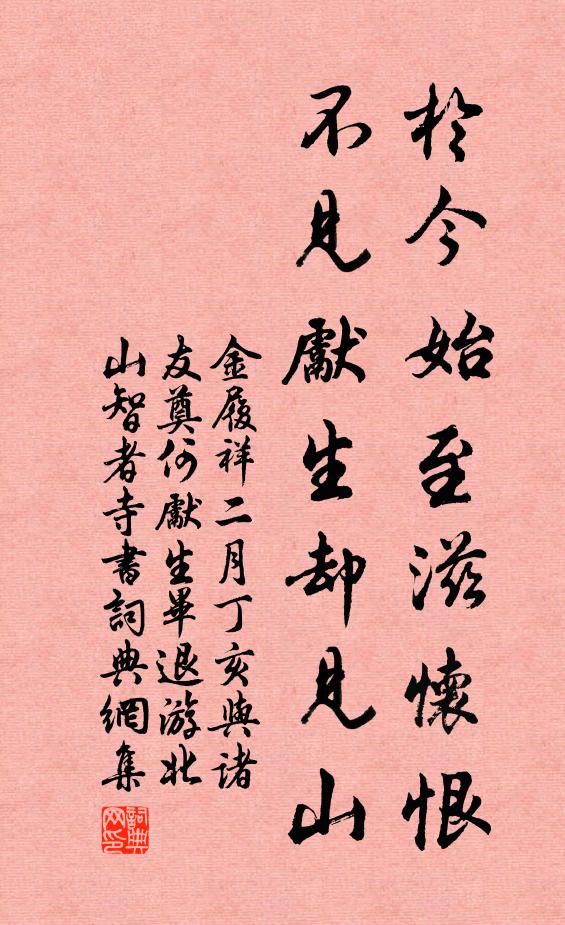 於今始至滋懷恨
不見獻生却見山
金履祥二月丁亥與諸
友奠何獻生畢退游北
山智者寺書詞典網集
詞典
网印